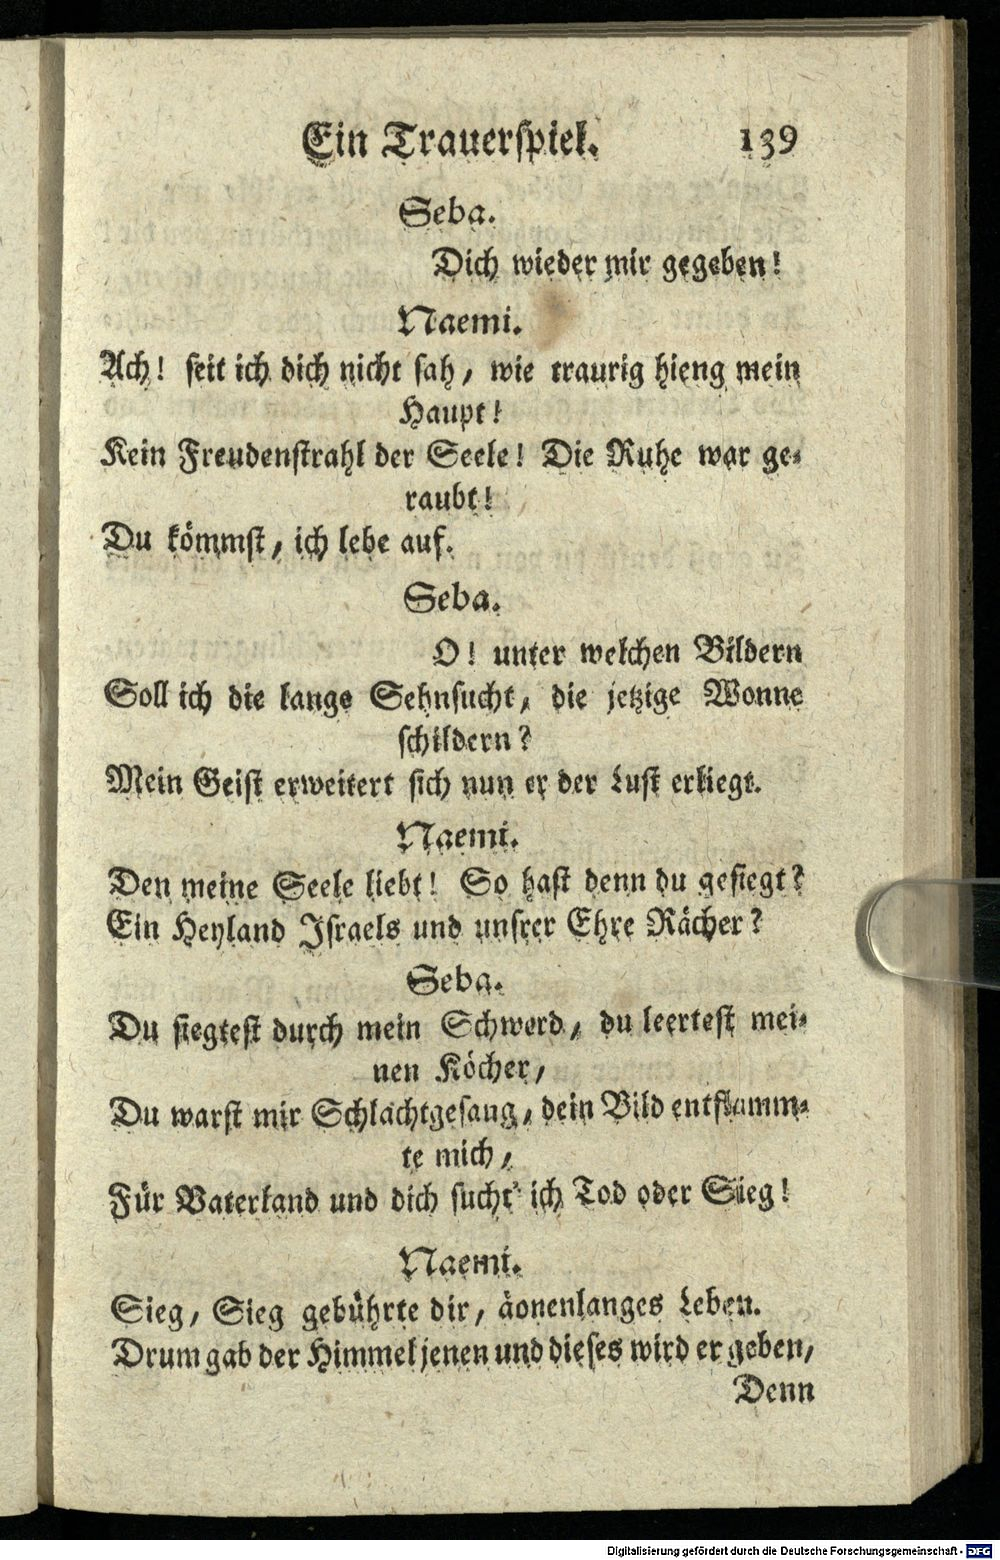 Ein Trauerspiel. 139
Seba.
Dich wieder mir gegeben!
Naemi.
Ach! seit ich dich nicht sah, wie traurig hieng mein
Haupt!
Kein Freudenstrahl der Seele! Die Ruhe war ge-
raubt!
Du kömmst, ich lebe auf.
Seba.
O! unter welchen Bildern
Soll ich die lange Sehnsucht, die jetzige Wonne
schildern?
Mein Geist erweitert sich nun er der Lust erliegt.
Naemi.
Den meine Seele liebt! So hast denn du gesiegt?
Ein Heyland Israels und unsrer Ehre Rächer?
Seba.
Du siegtest durch mein Schwerd, du leertest mei-
nen Köcher,
Du warst mir Schlachtgesang, dein Bild entflamm-
te mich,
Für Vaterland und dich sucht' ich Tod oder Sieg!
Naemi.
Sieg, Sieg gebührte dir, äonenlanges Leben.
Drum gab der Himmel jenen und dieses wird er geben,
Denn
Digitalisierung gefördert durch die Deutsche Forschungsgemeinschaft - DFG